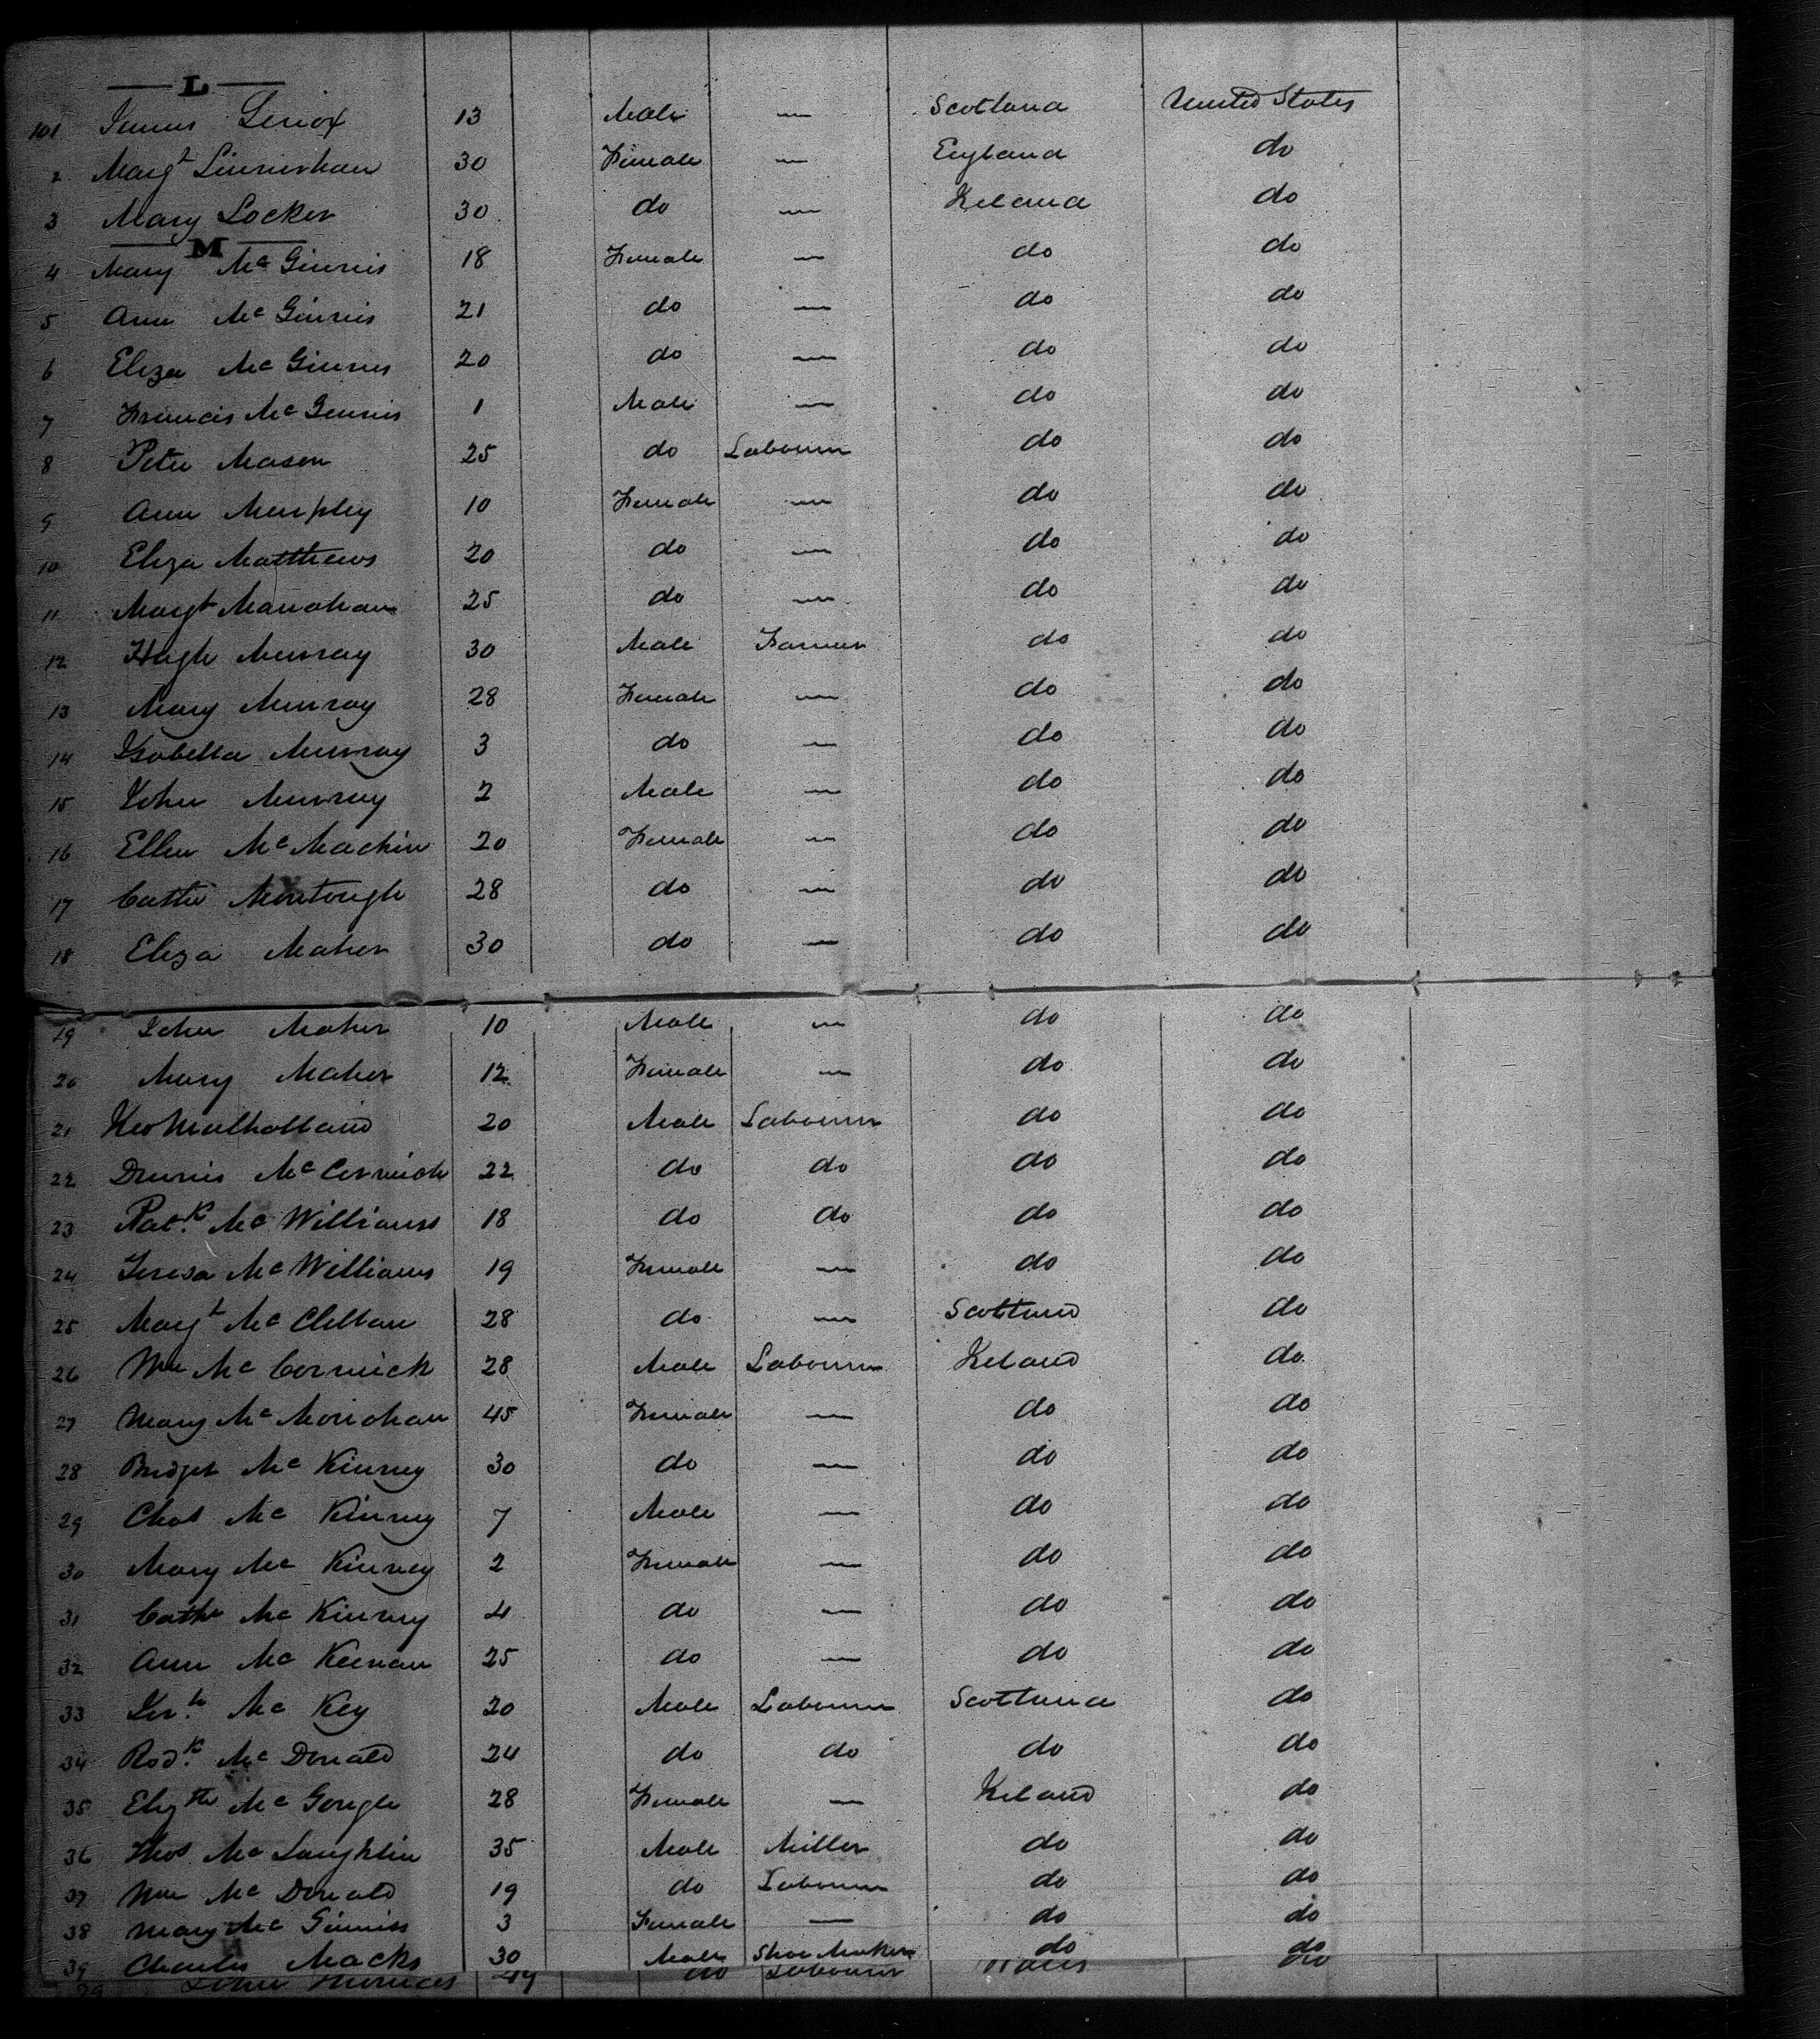 L
101 James Lenox 13 Male — Scotland United States
2 Margt Linnerhan 30 Female — England do
3 Mary Locker 30 do — Ireland do
M
4 Mary McGinnis 18 Female — do do
5 Ann McGinnis 21 do — do do
6 Eliza McGinnis 20 do — do do
7 Francis McGinnis 1 Male — do do
8 Peter Mason 25 do Labourer do do
9 Ann Murphy 10 Female — do do
10 Eliza Matthews 20 do — do do
11 Margt Manahan 25 do — do do
12 Hugh Murray 30 Male Farmer do do
13 Mary Murray 28 Female — do do
14 Isabella Murray 3 do — do do
15 John Murray 2 Male — do do
16 Ellen McMackin 20 Female — do do
17 Cathe Montough 28 do — do do
18 Eliza Maher 30 do — do do
19 John Maher 10 Male — do do
20 Mary Maher 12 Female — do do
21 Mulholland 20 Male Labourer do do
22 Dennis McCormick 22 do do do do
23 Patk. McWilliams 18 do do do do
24 Teresa McWilliams 19 Female — do do
25 Margt McClellan 28 do — Scotland do
26 Wm McCormick 28 Male Labourer Ireland do
27 Mary McMonahan 45 Female — do do
28 Bridget McKinney 30 do — do do
29 Chas McKinney 7 Male — do do
30 Mary McKinney 2 Female — do do
31 Cathe McKinney 4 do — do do
32 Ann McKeenan 25 do — do do
33 McKey 20 Male Labourer Scotland do
34 Rodk. McDonald 24 do do do do
35 Elizth McGough 28 Female — Ireland do
36 Thos McLaughlin 35 Male Miller do do
37 Wm McDonald 19 do Labourer do do
38 Mary McGinniss 3 Female — do do
39 Charles Macks 30 Male Shoe Maker do do
John do Labourer do